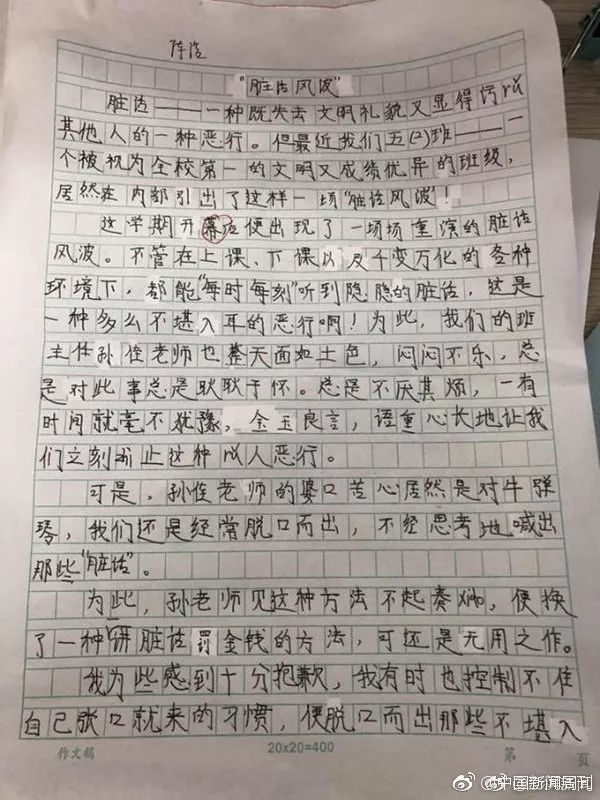 陈浩
“脏话风波”
脏话——一种既失去文明礼貌又显得污rǔ
其他人的一种恶行。但最近我们五(2)班——一
个被视为全校第一的文明又成绩优异的班级，
居然在内部引出了这样一场“脏话风波”！
这学期开幕后便出现了一场场重演的脏话
风波。不管在上课、下课以及千变万化的各种
环境下，都能“每时每刻”听到隐隐的脏话，这是
一种多么不堪入耳的恶行啊！为此，我们的班
主任孙佳老师也整天面如土色，闷闷不乐，总
是对此事总是耿耿于怀。总是不厌其烦，一有
时间就毫不犹豫，金玉良言，语重心长地让我
们立刻停止这种以人恶行。
可是，孙佳老师的婆口苦心居然是对牛弹
琴，我们还是经常脱口而出，不经思考地喊出
那些“脏话”。
为此，孙老师见这种方法不起奏xiào，便换
了一种讲脏话罚金钱的方法，可还是无用之作。
我为些感到十分抱歉，我有时也控制不住
自己张口就来的习惯，便脱口而出那些不堪入
作文稿 20×20=400 第 页
@中国新闻周刊